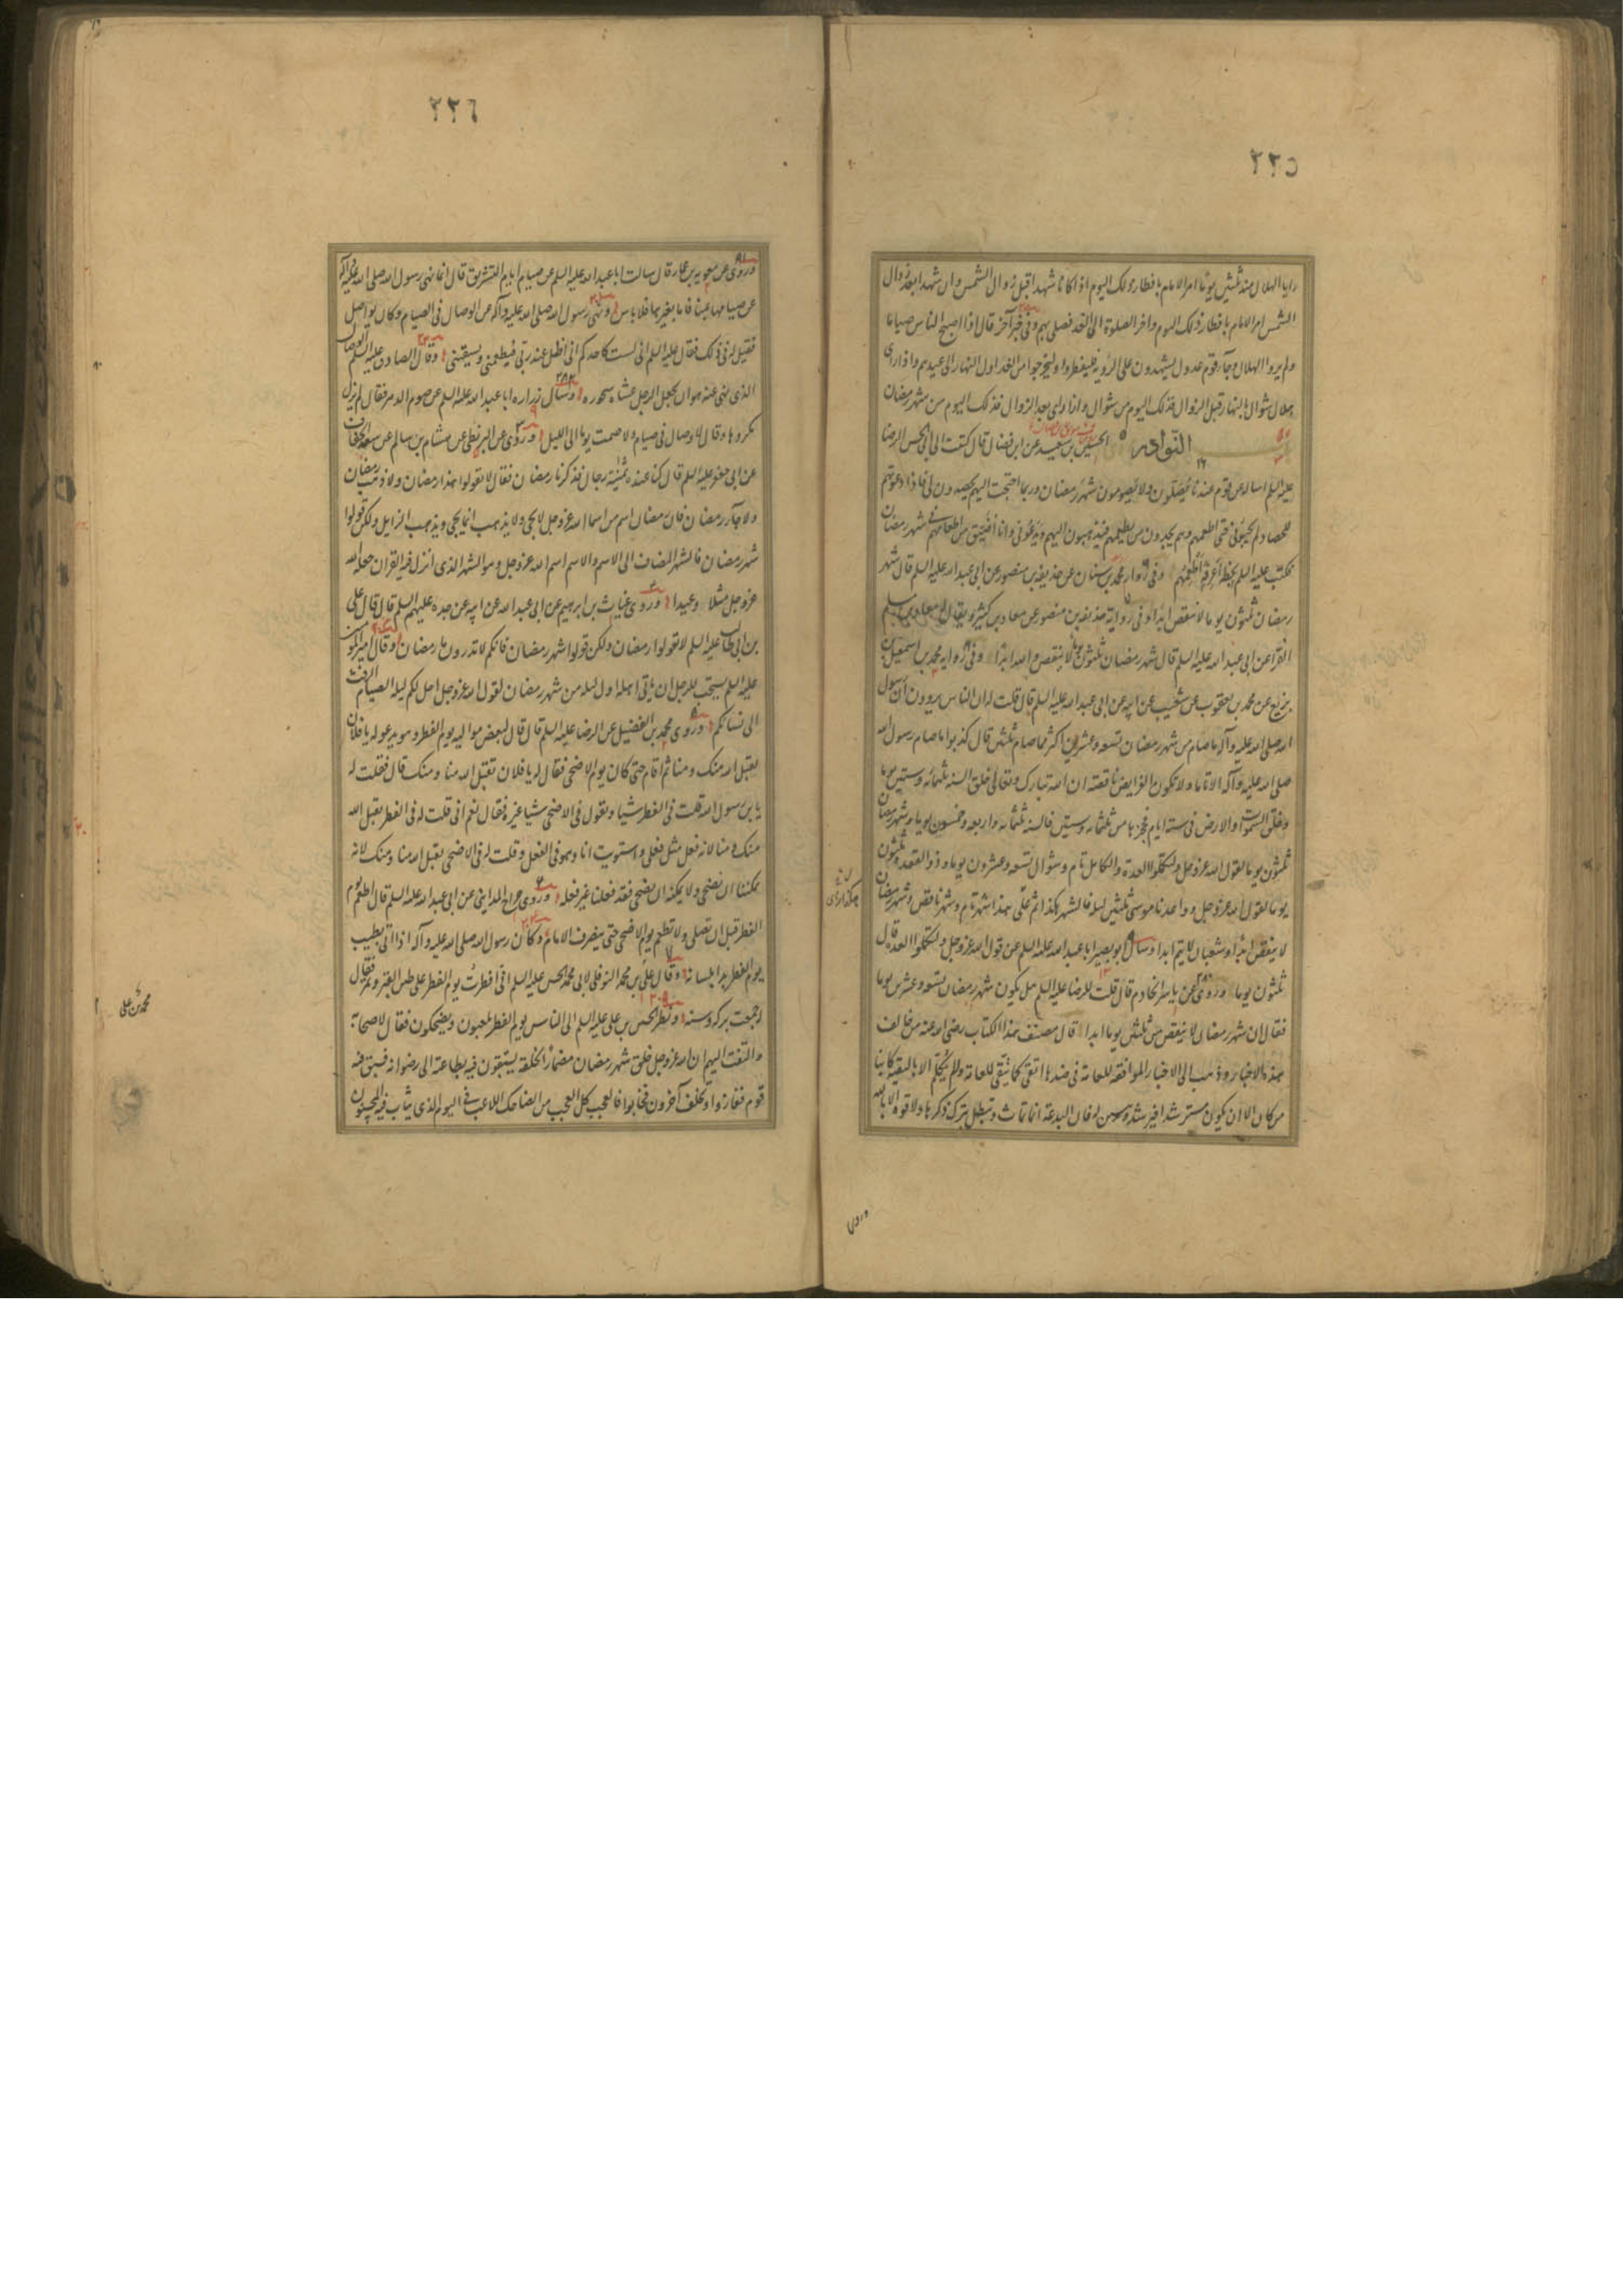 ٢٢٥
رايا الهلال منذ ثلثين يوما امر الامام بافطار ذلك اليوم اذا كانا شهدا قبل زوال الشمس وان شهدا بعد زوال
الشمس امر الامام بافطار ذلك اليوم واخر الصلوة الى الغد فصلى بهم وفى خبر آخر قال اذا اصبح الناس صياما
ولم يروا الهلال وجآء قوم عدول يشهدون على الرؤية فليفطروا وليخرجوا من الغد اول النهار الى عيدهم واذا راى
هلال شوال بالنهار قبل الزوال فذلك اليوم من شوال واذا راى بعد الزوال فذلك اليوم من شهر رمضان
النوادر الحسين بن سعيد عن ابن فضال قال كتبت الى ابى الحسن الرضا
عليه السلم اساله عن قوم عندنا يصلون ولا يصومون شهر رمضان وربما احتجت اليهم يحصدون لى فاذا دعوتهم
للحصاد لم يجيبونى حتى اطعمهم وهم يجدون من يطعمهم فيذهبون اليهم ويدعونى وانا اضيق من اطعامهم فى شهر رمضان
فكتب عليه السلم بخطه اعرفه اطعمهم وفى رواية محمد بن سنان عن حذيفة بن منصور عن ابى عبد الله عليه السلم قال شهر
رمضان ثلثون يوما لا ينقص ابدا وفى رواية حذيفة بن منصور عن معاذ بن كثير ويقال له معاذ بن مسلم
الفرا عن ابى عبد الله عليه السلم قال شهر رمضان ثلثون يوما لا ينقص والله ابدا وفى رواية محمد بن اسمعيل بن
بزيع عن محمد بن يعقوب عن شعيب عن ابيه عن ابى عبد الله عليه السلم قال قلت له ان الناس يروون ان رسول
الله صلى الله عليه وآله ما صام من شهر رمضان تسعة وعشرين اكثر مما صام ثلثين قال كذبوا ما صام رسول الله
صلى الله عليه وآله الا تاما ولا تكون الفرايض ناقصة ان الله تبارك وتعالى خلق السنة ثلثمائه وستين يوما
وخلق السموات والارض فى ستة ايام فحجزها من ثلثمائه وستين فالسنة ثلثمائه واربعه وخمسون يوما وشهر رمضان
ثلثون يوما لقول الله عز وجل ولتكملوا العدة والكامل تام وشوال تسعة وعشرون يوما وذو القعدة ثلثون
يوما لقول الله عز وجل وواعدنا موسى ثلثين ليلة فالشهر هكذا ثم على هذا شهر تام وشهر ناقص وشهر رمضان
لا ينقص ابدا وشعبان لا يتم ابدا وسال ابو بصير ابا عبد الله عليه السلم عن قول الله عز وجل ولتكملوا العدة قال
ثلثون يوما وروى عن ياسر الخادم قال قلت للرضا عليه السلم هل يكون شهر رمضان تسعة وعشرين يوما
فقال ان شهر رمضان لا ينقص من ثلثين يوما ابدا قال مصنف هذا الكتاب رضى الله عنه من خالف
هذه الاخبار وذهب الى الاخبار الموافقة للعامة فى ضدها اتقى كما يتقى العامة ولم يكلم الا بالتقية كاينا
من كان الا ان يكون مسترشدا فيرشد ويبين له فان البدعة انما تماث وتبطل بترك ذكرها ولا قوة الا بالله
وروى
٢٢٦
وروى عن معوية بن عمار قال سالت ابا عبد الله عليه السلم عن صيام ايام التشريق قال انما نهى رسول الله صلى الله عليه وآله
عن صيامها بمنا فاما بغيرها فلا باس ونهى رسول الله صلى الله عليه وآله عن الوصال فى الصيام وكان يواصل
فقيل له فى ذلك فقال عليه السلم انى لست كاحدكم انى اظل عند ربى فيطعمنى ويسقينى وقال الصادق عليه السلم الوصال
الذى نهى عنه هو ان يجعل الرجل عشاه سحوره وسال زرارة ابا عبد الله عليه السلم عن صوم الدهر فقال لم يزل
مكروها وقال لا وصال فى صيام ولا صمت يوما الى الليل وروى عن البزنطى عن هشام بن سالم عن سعد الخفاف
عن ابى جعفر عليه السلم قال كنا عنده ثمنية رجال فذكرنا رمضان فقال لا تقولوا هذا رمضان ولا ذهب رمضان
ولا جآء رمضان فان رمضان اسم من اسما الله عز وجل لا يجى ولا يذهب انما يجى ويذهب الزايل ولكن قولوا
شهر رمضان فالشهر المضاف الى الاسم والاسم اسم الله عز وجل وهو الشهر الذى انزل فيه القران جعله الله
عز وجل مثلا وعيدا وروى غياث بن ابراهيم عن ابى عبد الله عن ابيه عن جده عليهم السلم قال قال على
بن ابى طالب عليه السلم لا تقولوا رمضان ولكن قولوا شهر رمضان فانكم لا تدرون ما رمضان وقال امير المؤمنين
عليه السلم يستحب للرجل ان ياتى اهله اول ليلة من شهر رمضان لقول الله عز وجل احل لكم ليلة الصيام الرفث
الى نسائكم وروى محمد بن الفضيل عن الرضا عليه السلم قال قال لبعض مواليه يوم الفطر وهو يدعو له يا فلان
تقبل الله منك ومنا ثم اقام حتى كان يوم الاضحى فقال له يا فلان تقبل الله منا ومنك قال فقلت له
يا بن رسول الله قلت فى الفطر شيا وتقول فى الاضحى شيا غيره فقال نعم انى قلت له فى الفطر تقبل الله
منك ومنا لانه فعل مثل فعلى واستويت انا وهو فى الفعل وقلت له فى الاضحى تقبل الله منا ومنك لانه
يمكننا ان نضحى ولا يمكنه ان يضحى فقد فعلنا غير فعله وروى جراح المداينى عن ابى عبد الله عليه السلم قال اطعم يوم
الفطر قبل ان تصلى ولا تطعم يوم الاضحى حتى ينصرف الامام وكان رسول الله صلى الله عليه وآله اذا اتى بطيب
يوم الفطر بدا بلسانه وقال على بن محمد النوفلى لابى محمد الحسن عليه السلم انى افطرت يوم الفطر على طين القبر وتمر فقال
له جمعت بركة وسنة ونظر الحسن بن على عليه السلم الى الناس يوم الفطر يلعبون ويضحكون فقال لاصحابه
والتفت اليهم ان الله عز وجل خلق شهر رمضان مضمارا لخلقه يستبقون فيه بطاعته الى رضوانه فسبق فيه
قوم ففازوا وتخلف آخرون فخابوا فالعجب كل العجب من الضاحك اللاعب فى اليوم الذى يثاب فيه المحسنون
محمد بن على